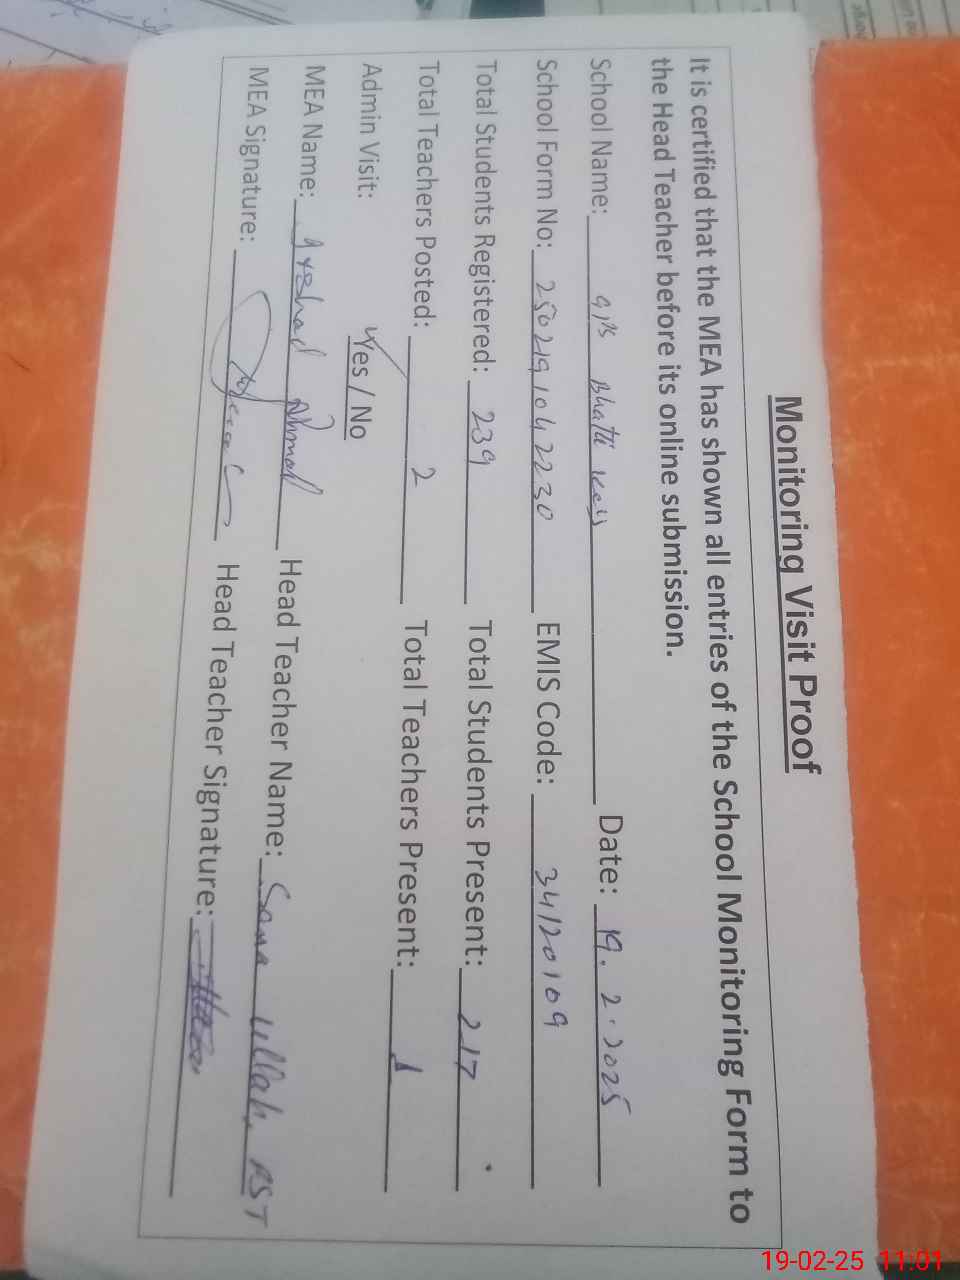 Monitoring Visit Proof
It is certified that the MEA has shown all entries of the School Monitoring Form to
the Head Teacher before its online submission.
School Name: GPS Bhatti Date: 19.2.2025
School Form No: 2502191042230 EMIS Code: 34120109
Total Students Registered: 239 Total Students Present: 217
Total Teachers Posted: 2 Total Teachers Present: 1
Admin Visit: Yes / No
MEA Name: Ahmad Head Teacher Name: Sana Ullah, PST
MEA Signature: Head Teacher Signature:
19-02-25 11:01